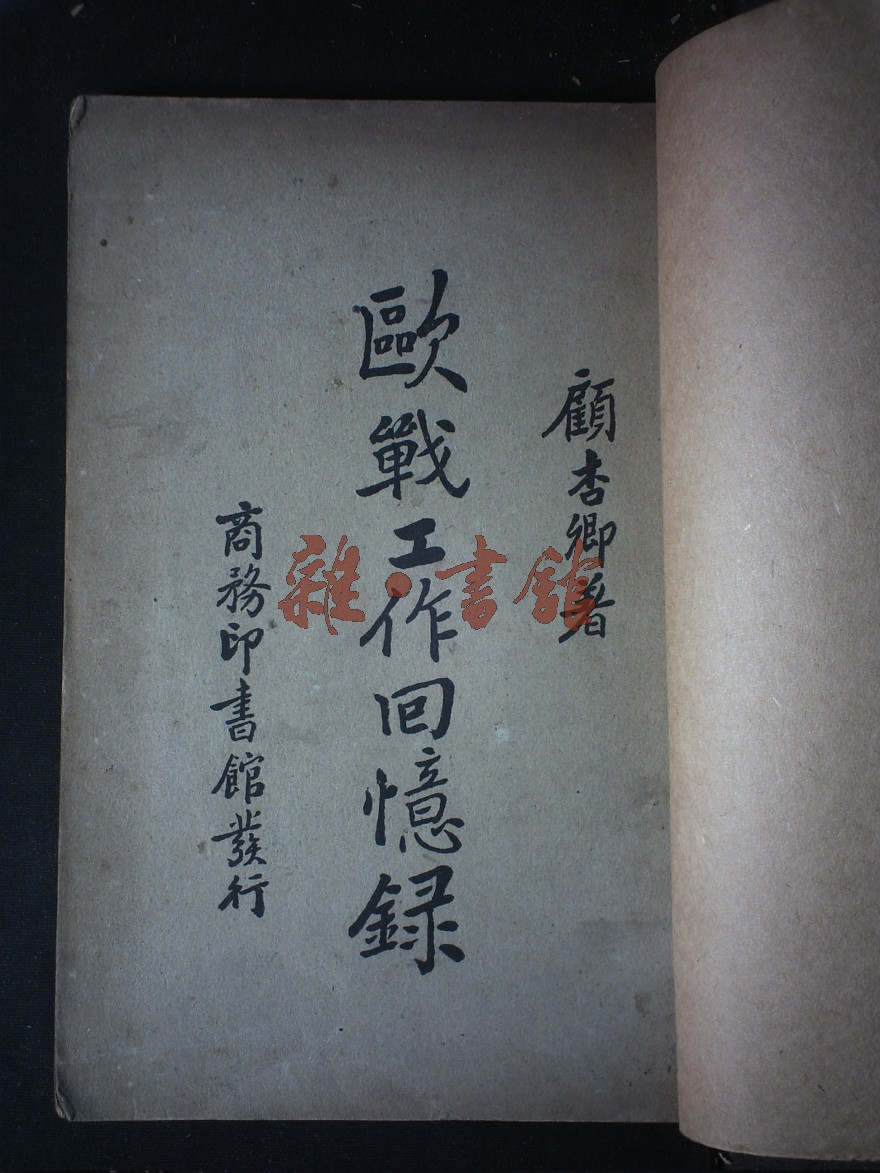 顧杏卿著
歐戰工作回憶録
商務印書館發行
雜·書館